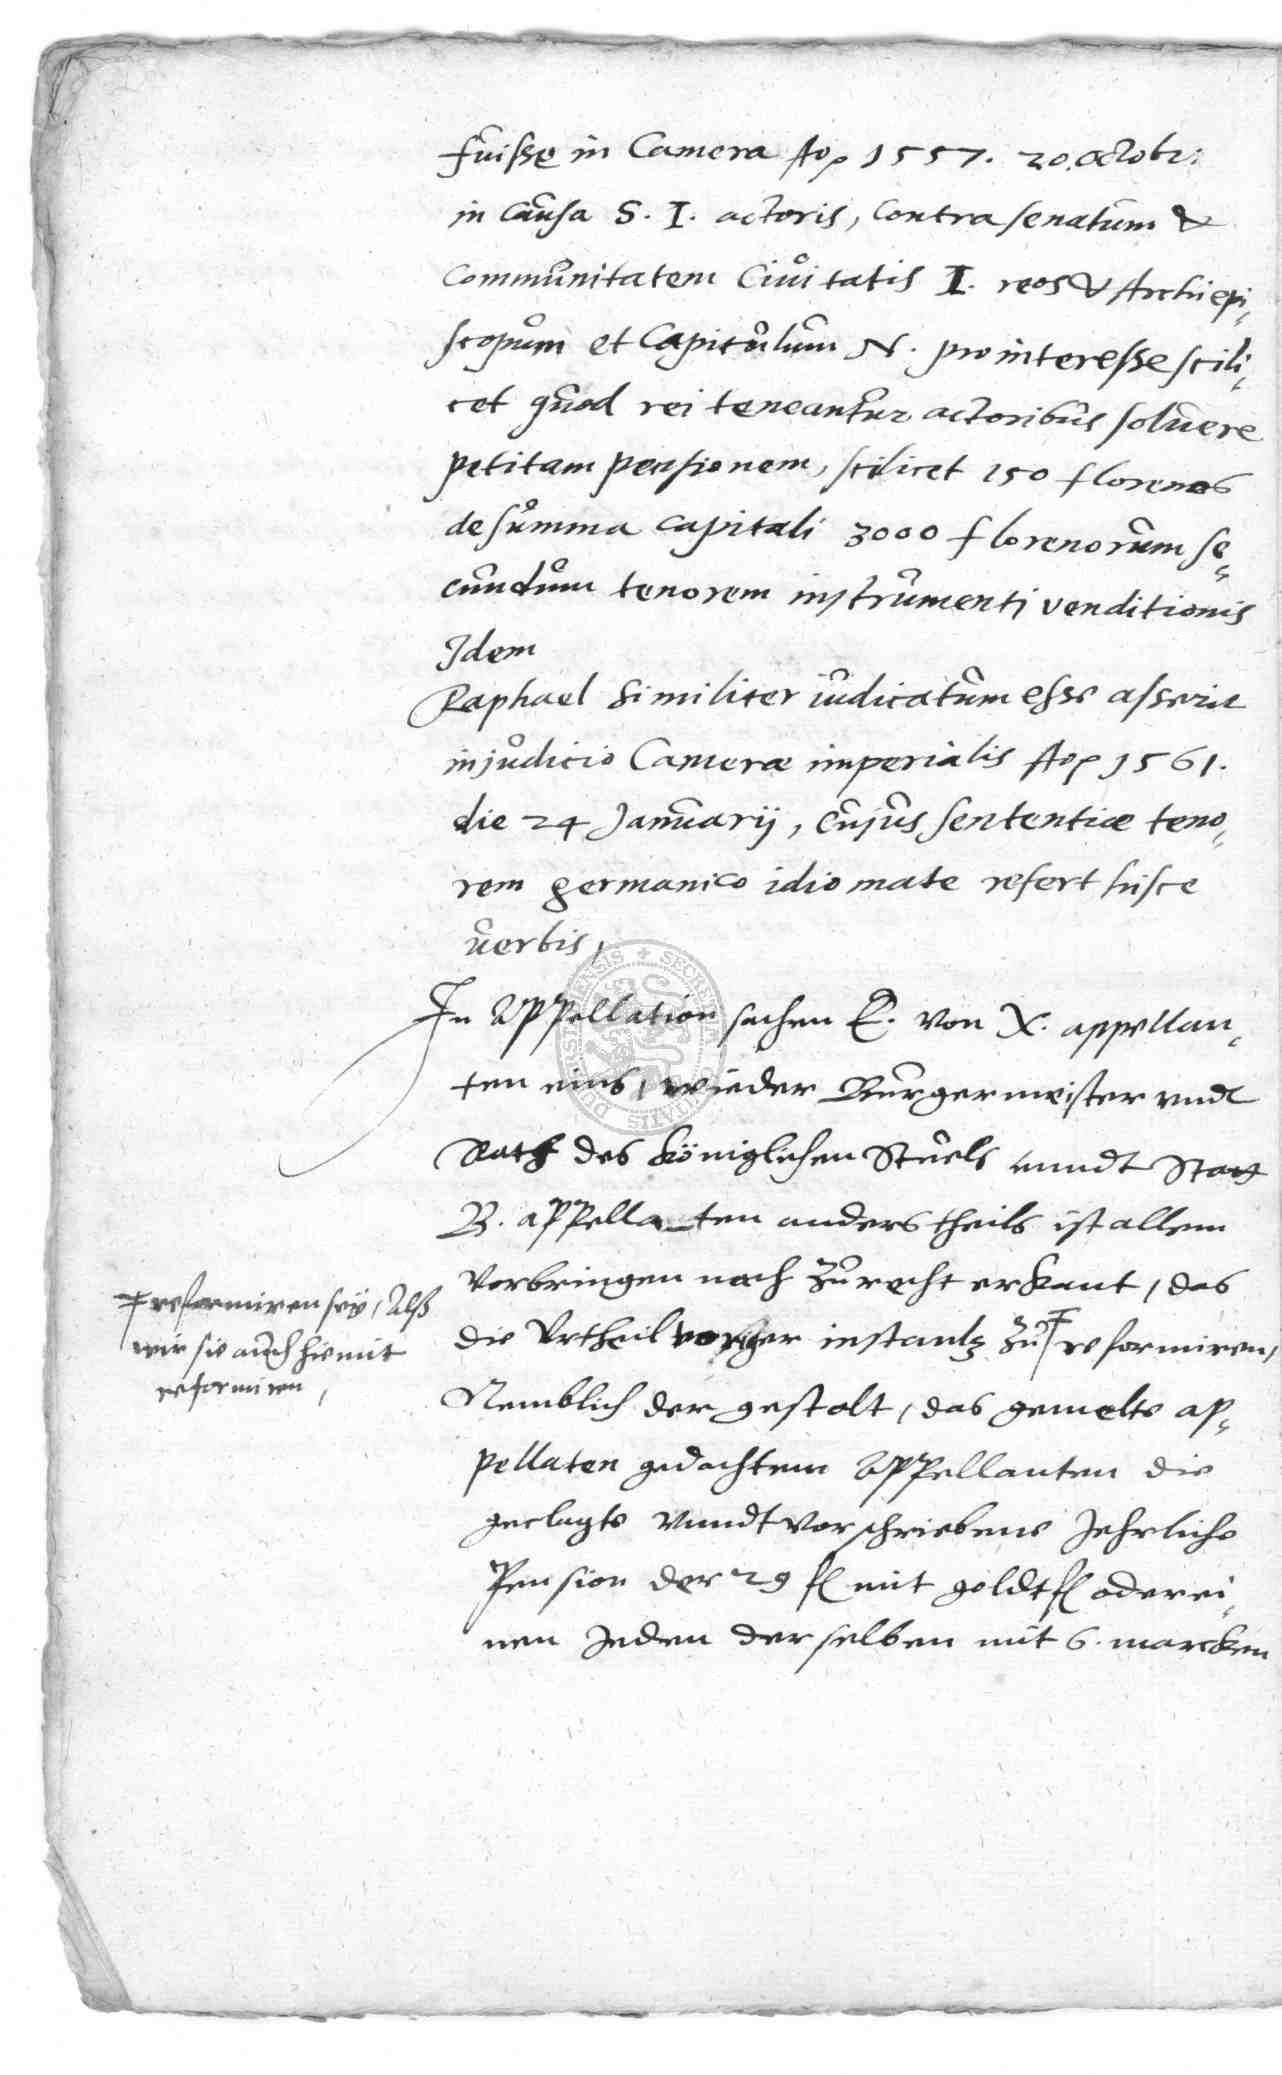 fuisse in Camera Ao. 1557. 20. Octobr:
in causa S. I. actoris, contra senatum &
communitatem Civitatis I. reos & Archiepi-
scopum et Capitulum N. pro interesse scili-
cet quod rei teneantur actoribus solvere
petitam pensionem, scilicet 150 florenos
de summa capitali 3000 florenorum se-
cundum tenorem instrumenti venditionis
Idem
Raphael similiter iudicatum esse asserit
in judicio Cameræ imperialis Ao. 1561.
die 24 Januarij, cujus sententiæ teno-
rem germanico idiomate refert hisce
verbis,
In Appellation sachen E. von X. appellan-
ten eins, wieder Burgermeister vnd
Rath des königlichen Stuels vnndt Statt
B. appellaten anders theils ist allem
Vorbringen nach zu recht erkant, das
die Vrtheil voriger instantz zu reformiren,
Nemblich der gestalt, das gemelte ap-
pellaten gedachtem Appellanten die
geclagte vnndt vorschriebene Jehrliche
Pension der 29 fl mit goldtfl oder ei-
nen jeden derselben mit 6. marcken
reformiren sey, Alß
wir sie auch hiemit
reformiren,
SECRETUM CIVITATIS